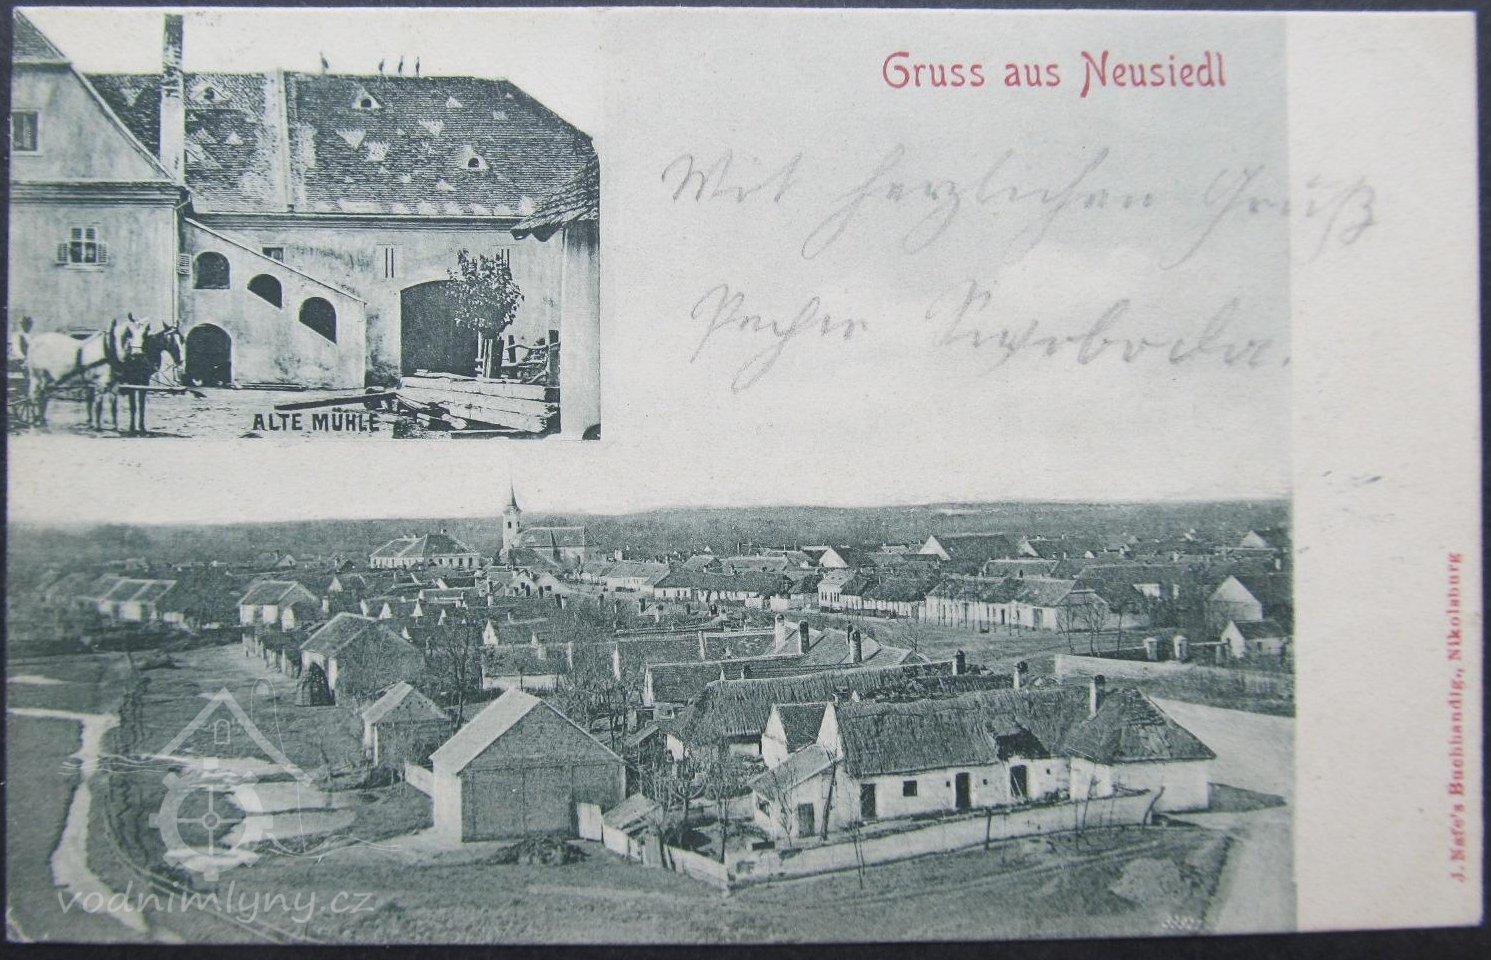 Gruss aus Neusiedl
Mit herzlichen Gruß
Swoboda.
ALTE MÜHLE
J. Nafe's Buchhandlg., Nikolsburg
vodnimlyny.cz